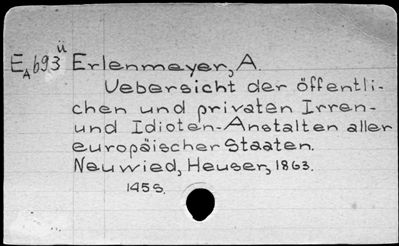 EA693ü Erlenmeyer, A
Uebersicht der öffentli-
chen und privaten Irren-
und Idioten-Anstalten aller
europäischer Staaten.
Neuwied, Heuser, 1863.
145 s.